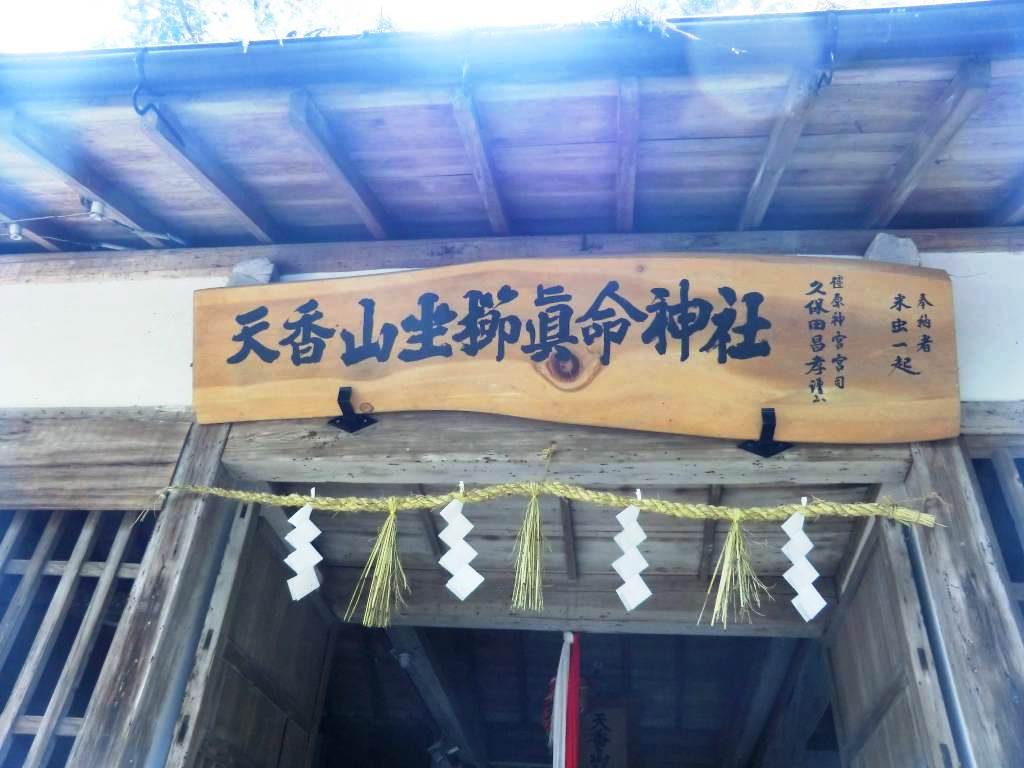 天香山坐櫛眞命神社
奉納者
米虫一起
橿原神宮宮司
久保田昌孝謹书
天香山